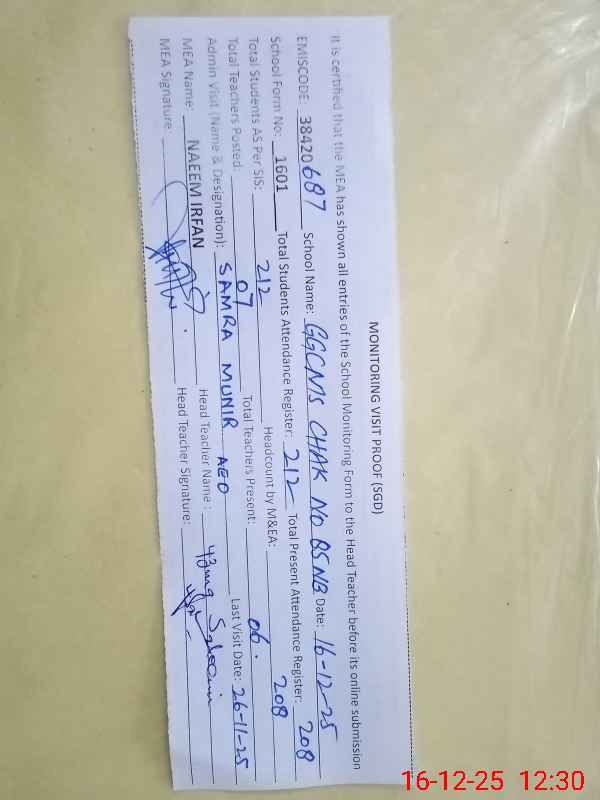 MONITORING VISIT PROOF (SGD)
It is certified that the MEA has shown all entries of the School Monitoring Form to the Head Teacher before its online submission
EMISCODE 38420687 School Name: GGCMS CHAK NO 85NB Date: 16-12-25
School Form No: 1601 Total Students Attendance Register: 212 Total Present Attendance Register: 208
Total Students AS Per SIS: 212 Headcount by M&EA: 208
Total Teachers Posted: 07 Total Teachers Present: 06.
Admin Visit (Name & Designation): SAMRA MUNIR AEO Last Visit Date: 26-11-25
MEA Name: NAEEM IRFAN Head Teacher Name :
MEA Signature: Head Teacher Signature:
16-12-25 12:30